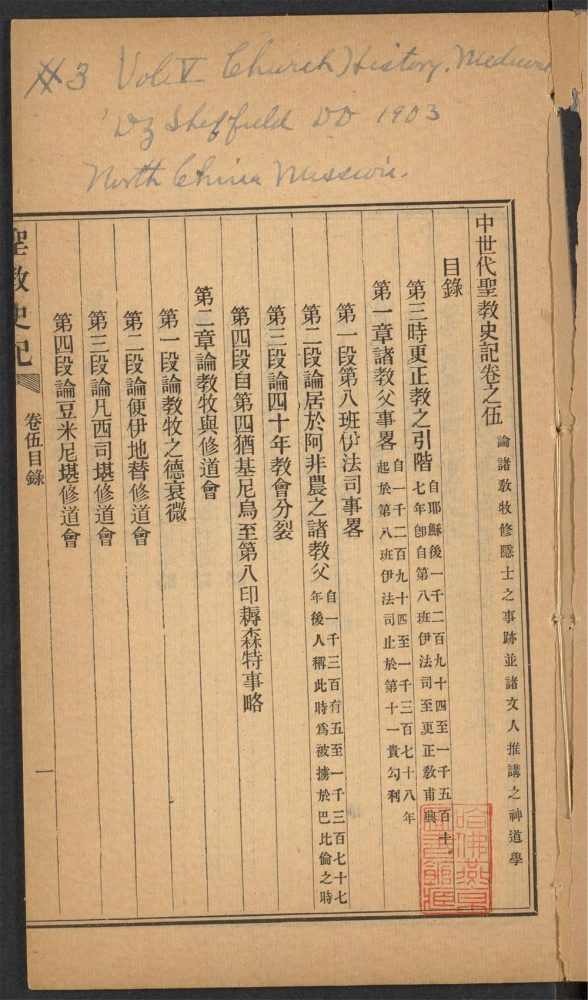 #3 Vol V Church History. Medieval
D Z Sheffield DD 1903
North China Mission.
中世代聖教史記卷之伍 論諸教牧修隱士之事跡並諸文人推講之神道學
目錄
第三時更正教之引階 自耶穌後一千二百九十四至一千五百十七年卽自第八班伊法司至更正教甫興
第一章諸教父事畧 自一千二百九十四至一千三百七十八年起於第八班伊法司止於第十一貴勾利
第一段第八班伊法司事畧
第二段論居於阿非農之諸教父 自一千三百有五至一千三百七十七年後人稱此時爲被擄於巴比倫之時
第三段論四十年教會分裂
第四段自第四猶基尼烏至第八印耨森特事略
第二章論教牧與修道會
第一段論教牧之德衰微
第二段論便伊地替修道會
第三段論凡西司堪修道會
第四段論豆米尼堪修道會
聖教史記 卷伍目錄 一
哈佛燕京圖書館